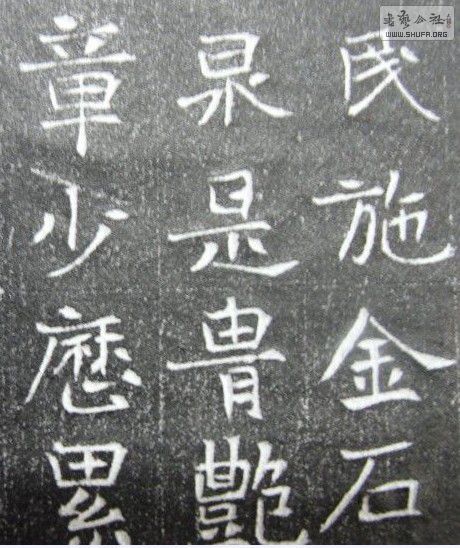 書藝公社
WWW.SHUFA.ORG
民施金石
泉是胄艷
章少歷累